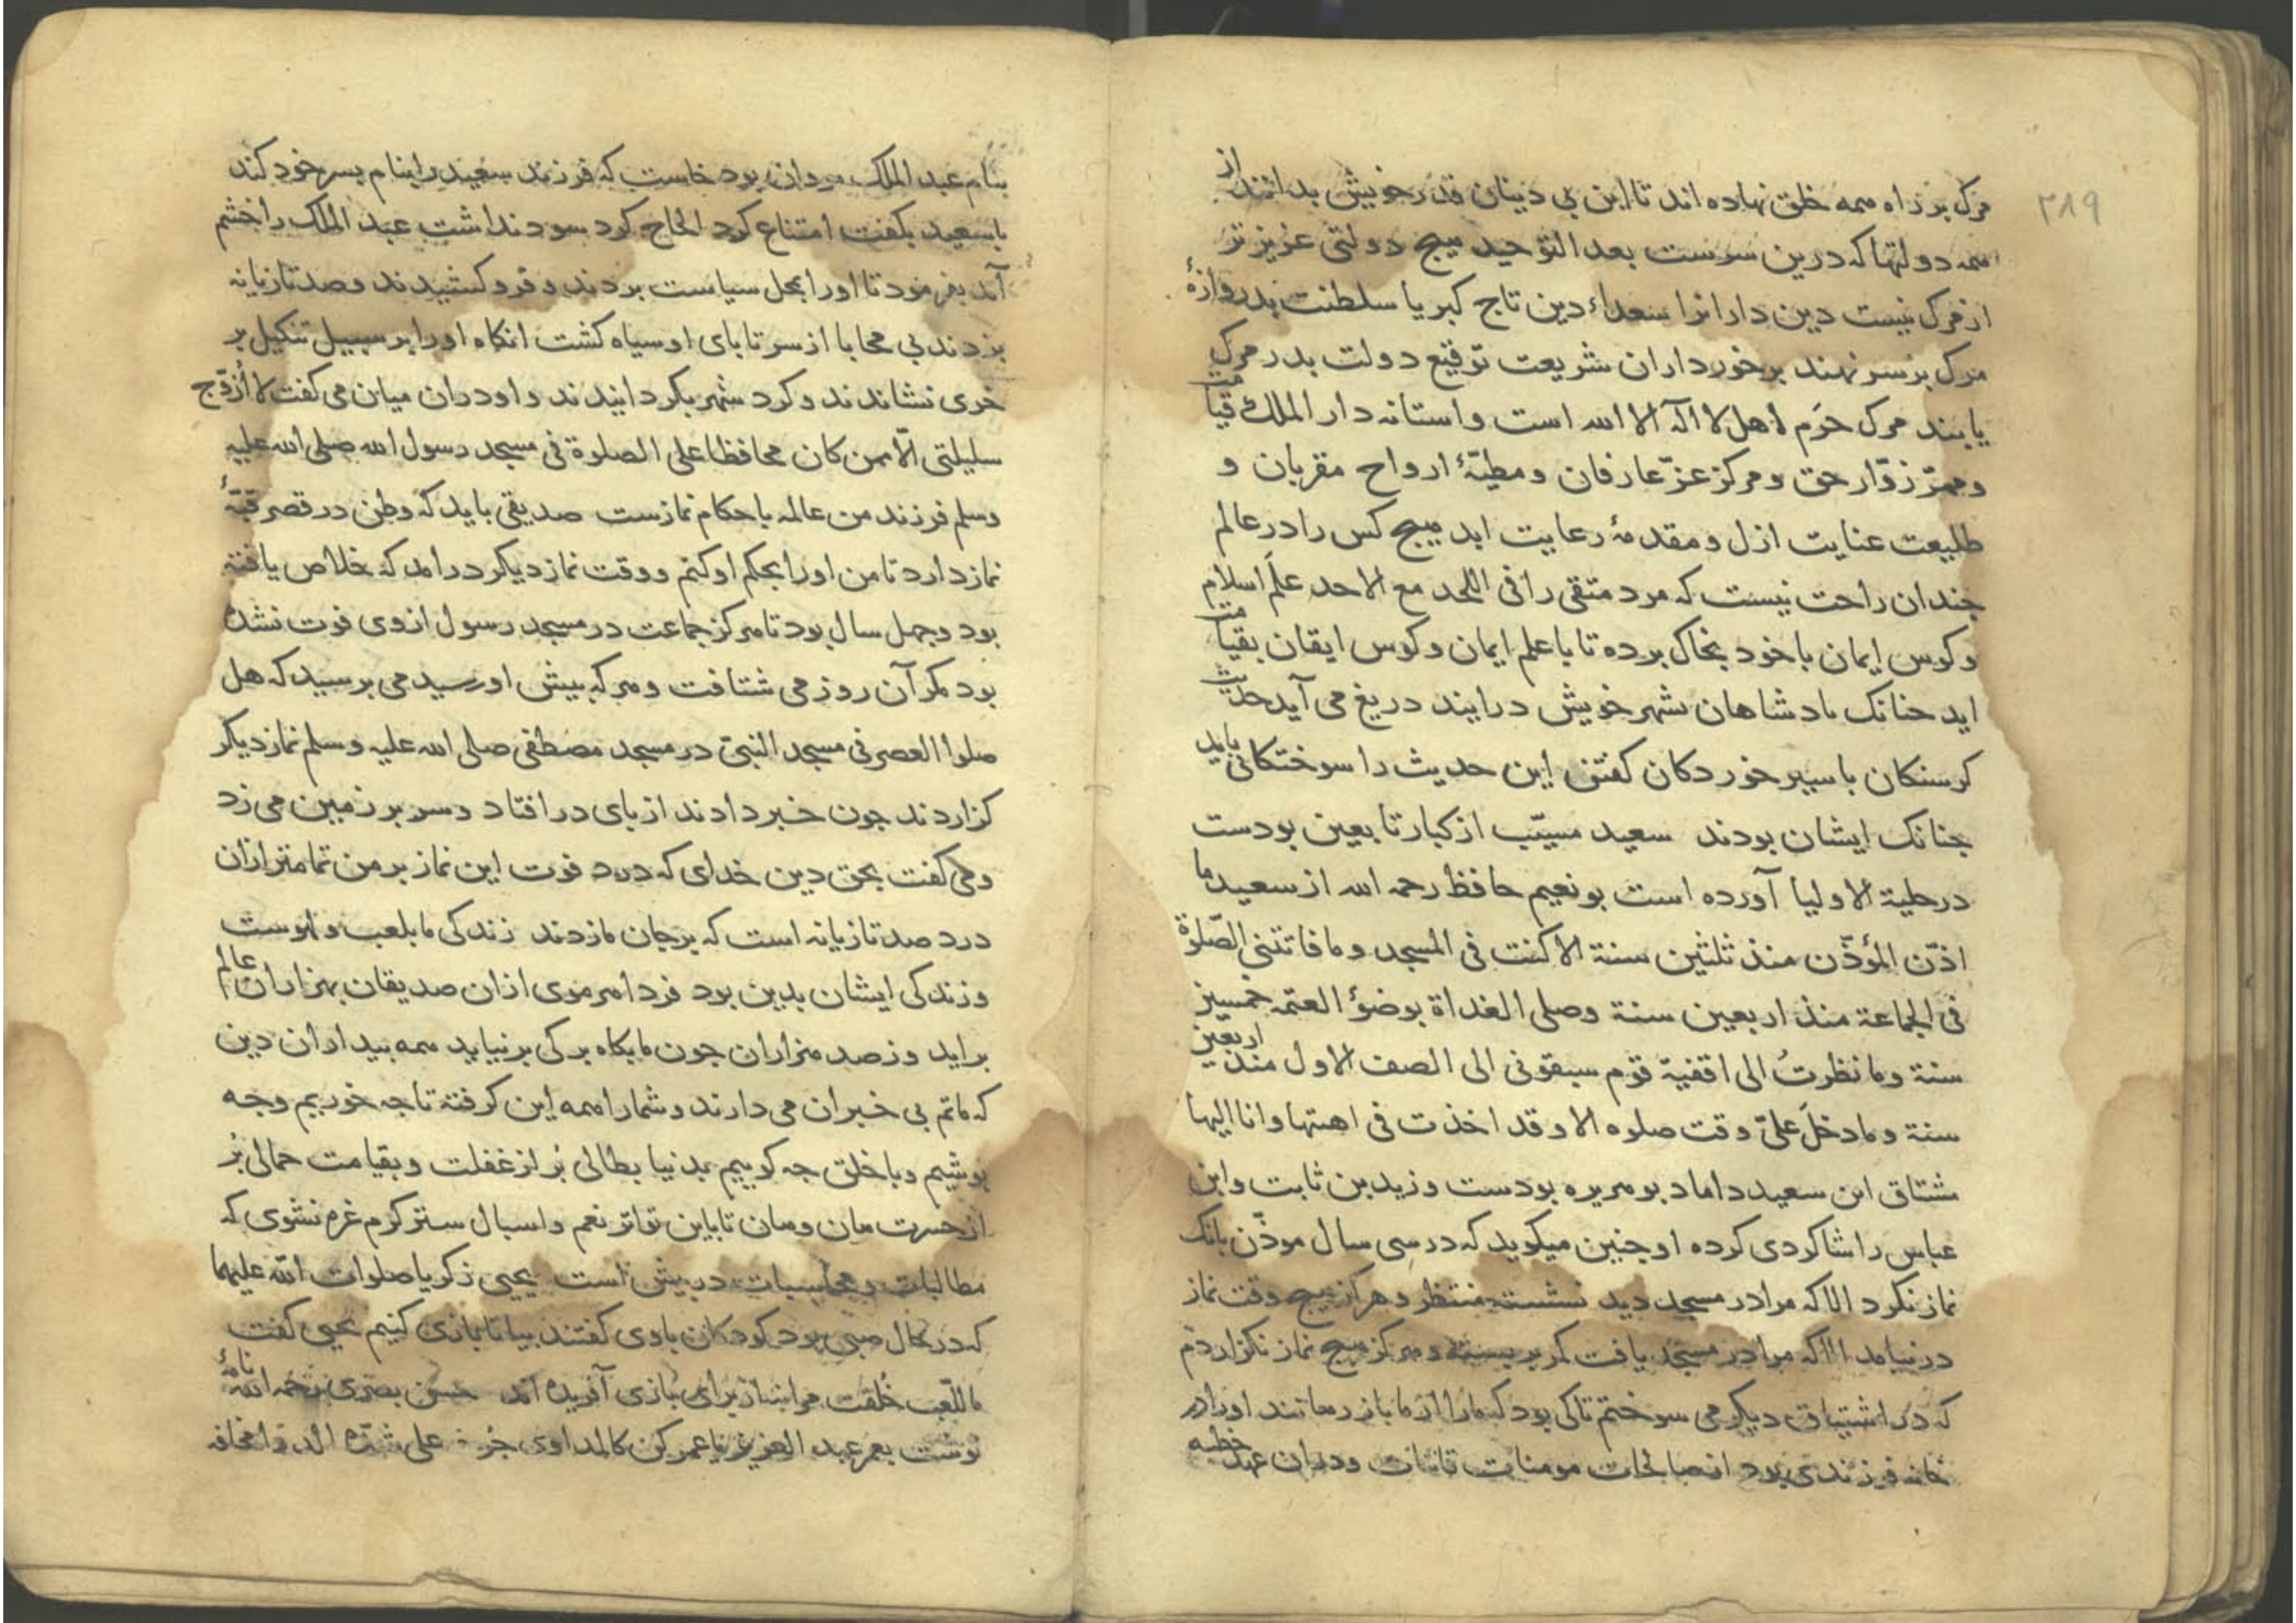 ۳۸۹
مرک بر راه همه خلق نهاده اند تا این بی دینان قدر خویش بدانند از
همه دولتها که درین سرست بعد التوحید هیچ دولتی عزیزتر
از مرک نیست دین دارانرا سعداء دین تاج کبریا سلطنت بدروازهٔ
مرک بر سر نهند برخورداران شریعت توقیع دولت بدر مرک
یابند مرک حَرَم اهل لا اله الا الله است واستانه دار الملک قیامت
وممرّ زوّار حق ومرکز عزّ عارفان ومطیّهٔ ارواح مقربان و
طلیعت عنایت ازل ومقدمهٔ رعایت ابد هیچ کس را در عالم
چندان راحت نیست که مرد متقی را فی اللحد مع الاحد علَم اسلام
وکوس ایمان با خود بخاک برده تا با علم ایمان وکوس ایقان بقیامت
اید جنانک بادشاهان بشهر خویش درایند دریغ می آید حدیث
کرسنکان با سیر خوردکان کفتن این حدیث را سوختکانی باید
جنانک ایشان بودند سعید مسیّب از کبار تابعین بودست
در حلیة الاولیا آورده است بو نعیم حافظ رحمه الله از سعید ما
اذّن المؤذّن منذ ثلثین سنة الا کنت فی المسجد وما فاتتنی الصّلوة
فی الجماعة منذ اربعین سنة وصلی الغداة بوضؤ العتمه خمسین
سنة وما نظرتُ الی اقفیة قوم سبقونی الی الصف الاول منذ اربعین
سنة وما دخلَ علیّ وقت صلوه الا وقد اخذت فی اهبتها وانا الیها
مشتاق این سعید داماد بو هریره بودست وزید بن ثابت وابن
عباس را شاکردی کرده او جنین میکوید که در سی سال موذّن بانک
نماز نکرد الا که مرا در مسجد دید نشسته منتظر وهرکز هیچ وقت نماز
درنیامد الا که مرا در مسجد یافت کمر بر بسته وهرکز هیچ نماز نکزاردم
که در اشتیاق دیکر می سوختم تا کی بود که ما را از ما باز رهانند او را در
خانه فرزندی بود از صالحات مومنات قانتات ودران عهد خطبه
بنام عبد الملک مروان بود خاست که فرزند سعید را بنام بسر خود کند
با سعید بکفت امتناع کرد الحاح کرد سود نداشت عبد الملک را خشم
آمد بفرمود تا او را بمحل سیاست بردند وفرو کشیدند وصد تازیانه
بزدند بی محابا از سر تا بای او سیاه کشت انکاه او را بر سبیل تنکیل بر
خری نشاندند وکرد شهر بکردانیدند واو دران میان می کفت لا ازوّج
سلیلتی الّا ممن کان محافظا علی الصلوة فی مسجد رسول الله صلی الله علیه
وسلم فرزند من عالمه باحکام نمازست صدیقی باید که وطن در قصر قبّهٔ
نماز دارد تا من او را بحکم او کنم ووقت نماز دیکر درامد که خلاص یافته
بود وجهل سال بود تا هرکز جماعت در مسجد رسول ازوی فوت نشده
بود مکر آن روز می شتافت وهر که بیش او رسید می برسید که هل
صلوا العصر فی مسجد النبیّ در مسجد مصطفی صلی الله علیه وسلم نماز دیکر
کزاردند جون خبر دادند از بای درافتاد وسر بر زمین می زد
ومی کفت بحق دین خدای که درد فوت این نماز بر من تمامتر ازان
درد صد تازیانه است که بر جان ما زدند زندکی ما بلعب ولهوست
وزندکی ایشان بدین بود فردا هر موی ازان صدیقان بهزاران عالم
براید وز صد هزاران جون ما بکاه برکی برنیاید همه بیداران دین
که ماتم بی خبران می دارند وشما را همه این کرفته تا جه خوریم وجه
بوشیم وبا خلق جه کوییم بدنیا بطالی بُر از غفلت وبقیامت حمالی بُر
از حسرت هان وهان تا باین تواتر نعم واسبال ستر کرم غره نشوی که
مطالبات ومحاسبات در بیش است یحیی زکریا صلوات الله علیهما
که در حال صبی بود کودکان باوی کفتند بیا تا بازی کنیم یحیی کفت
ما للّعب خُلقت مرا نه از برای بازی آفریده اند حسن بصری رحمه الله نامهٔ
نوشت بعمر عبد العزیز یا عمر کن کالمداوی جرحه علی شدّه الدوا مخافه